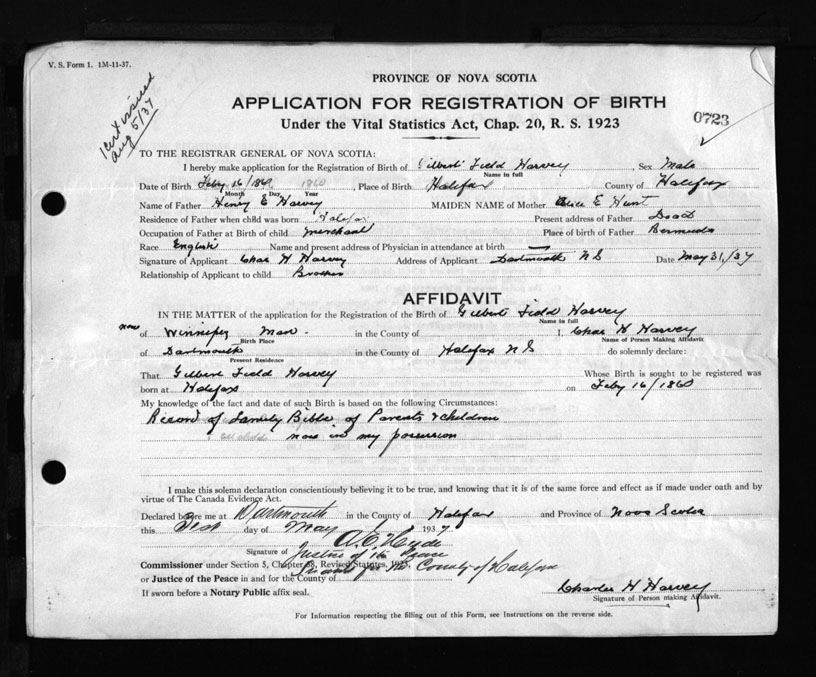 V. S. Form 1. 1M-11-37.
1 cert issued
Aug 5/37
PROVINCE OF NOVA SCOTIA
APPLICATION FOR REGISTRATION OF BIRTH
0723
Under the Vital Statistics Act, Chap. 20, R. S. 1923
TO THE REGISTRAR GENERAL OF NOVA SCOTIA:
I hereby make application for the Registration of Birth of Gilbert Field Harvey Sex Male
Name in full
Date of Birth Feby 16/1860 1860, Place of Birth Halifax County of Halifax
Month Day Year
Name of Father Henry E Harvey MAIDEN NAME of Mother Alice E Hunt
Residence of Father when child was born Halifax Present address of Father Dead
Occupation of Father at Birth of child Merchant Place of birth of Father Bermuda
Race English Name and present address of Physician in attendance at birth —
Signature of Applicant Chas H Harvey Address of Applicant Dartmouth N S Date May 31/37
Relationship of Applicant to child Brother
AFFIDAVIT
IN THE MATTER of the application for the Registration of the Birth of Gilbert Field Harvey
Name in full
now of Winnipeg Man - in the County of I, Chas H Harvey
Birth Place Name of Person Making Affidavit
of Dartmouth in the County of Halifax N S do solemnly declare:
Present Residence
That Gilbert Field Harvey Whose Birth is sought to be registered was
born at Halifax on Feby 16/1860
My knowledge of the fact and date of such Birth is based on the following Circumstances:
Record of Family Bible of Parents & children
now in my possession
I make this solemn declaration conscientiously believing it to be true, and knowing that it is of the same force and effect as if made under oath and by
virtue of The Canada Evidence Act.
Declared before me at Dartmouth in the County of Halifax and Province of Nova Scotia
this 31st day of May 1937
A. C. Hyde
Signature of Justice of the Peace
Commissioner under Section 5, Chapter 38, Revised Statutes, 1923, in and for the County of Halifax
or Justice of the Peace in and for the County of
If sworn before a Notary Public affix seal.
Charles H Harvey
Signature of Person making Affidavit.
For Information respecting the filling out of this Form, see Instructions on the reverse side.